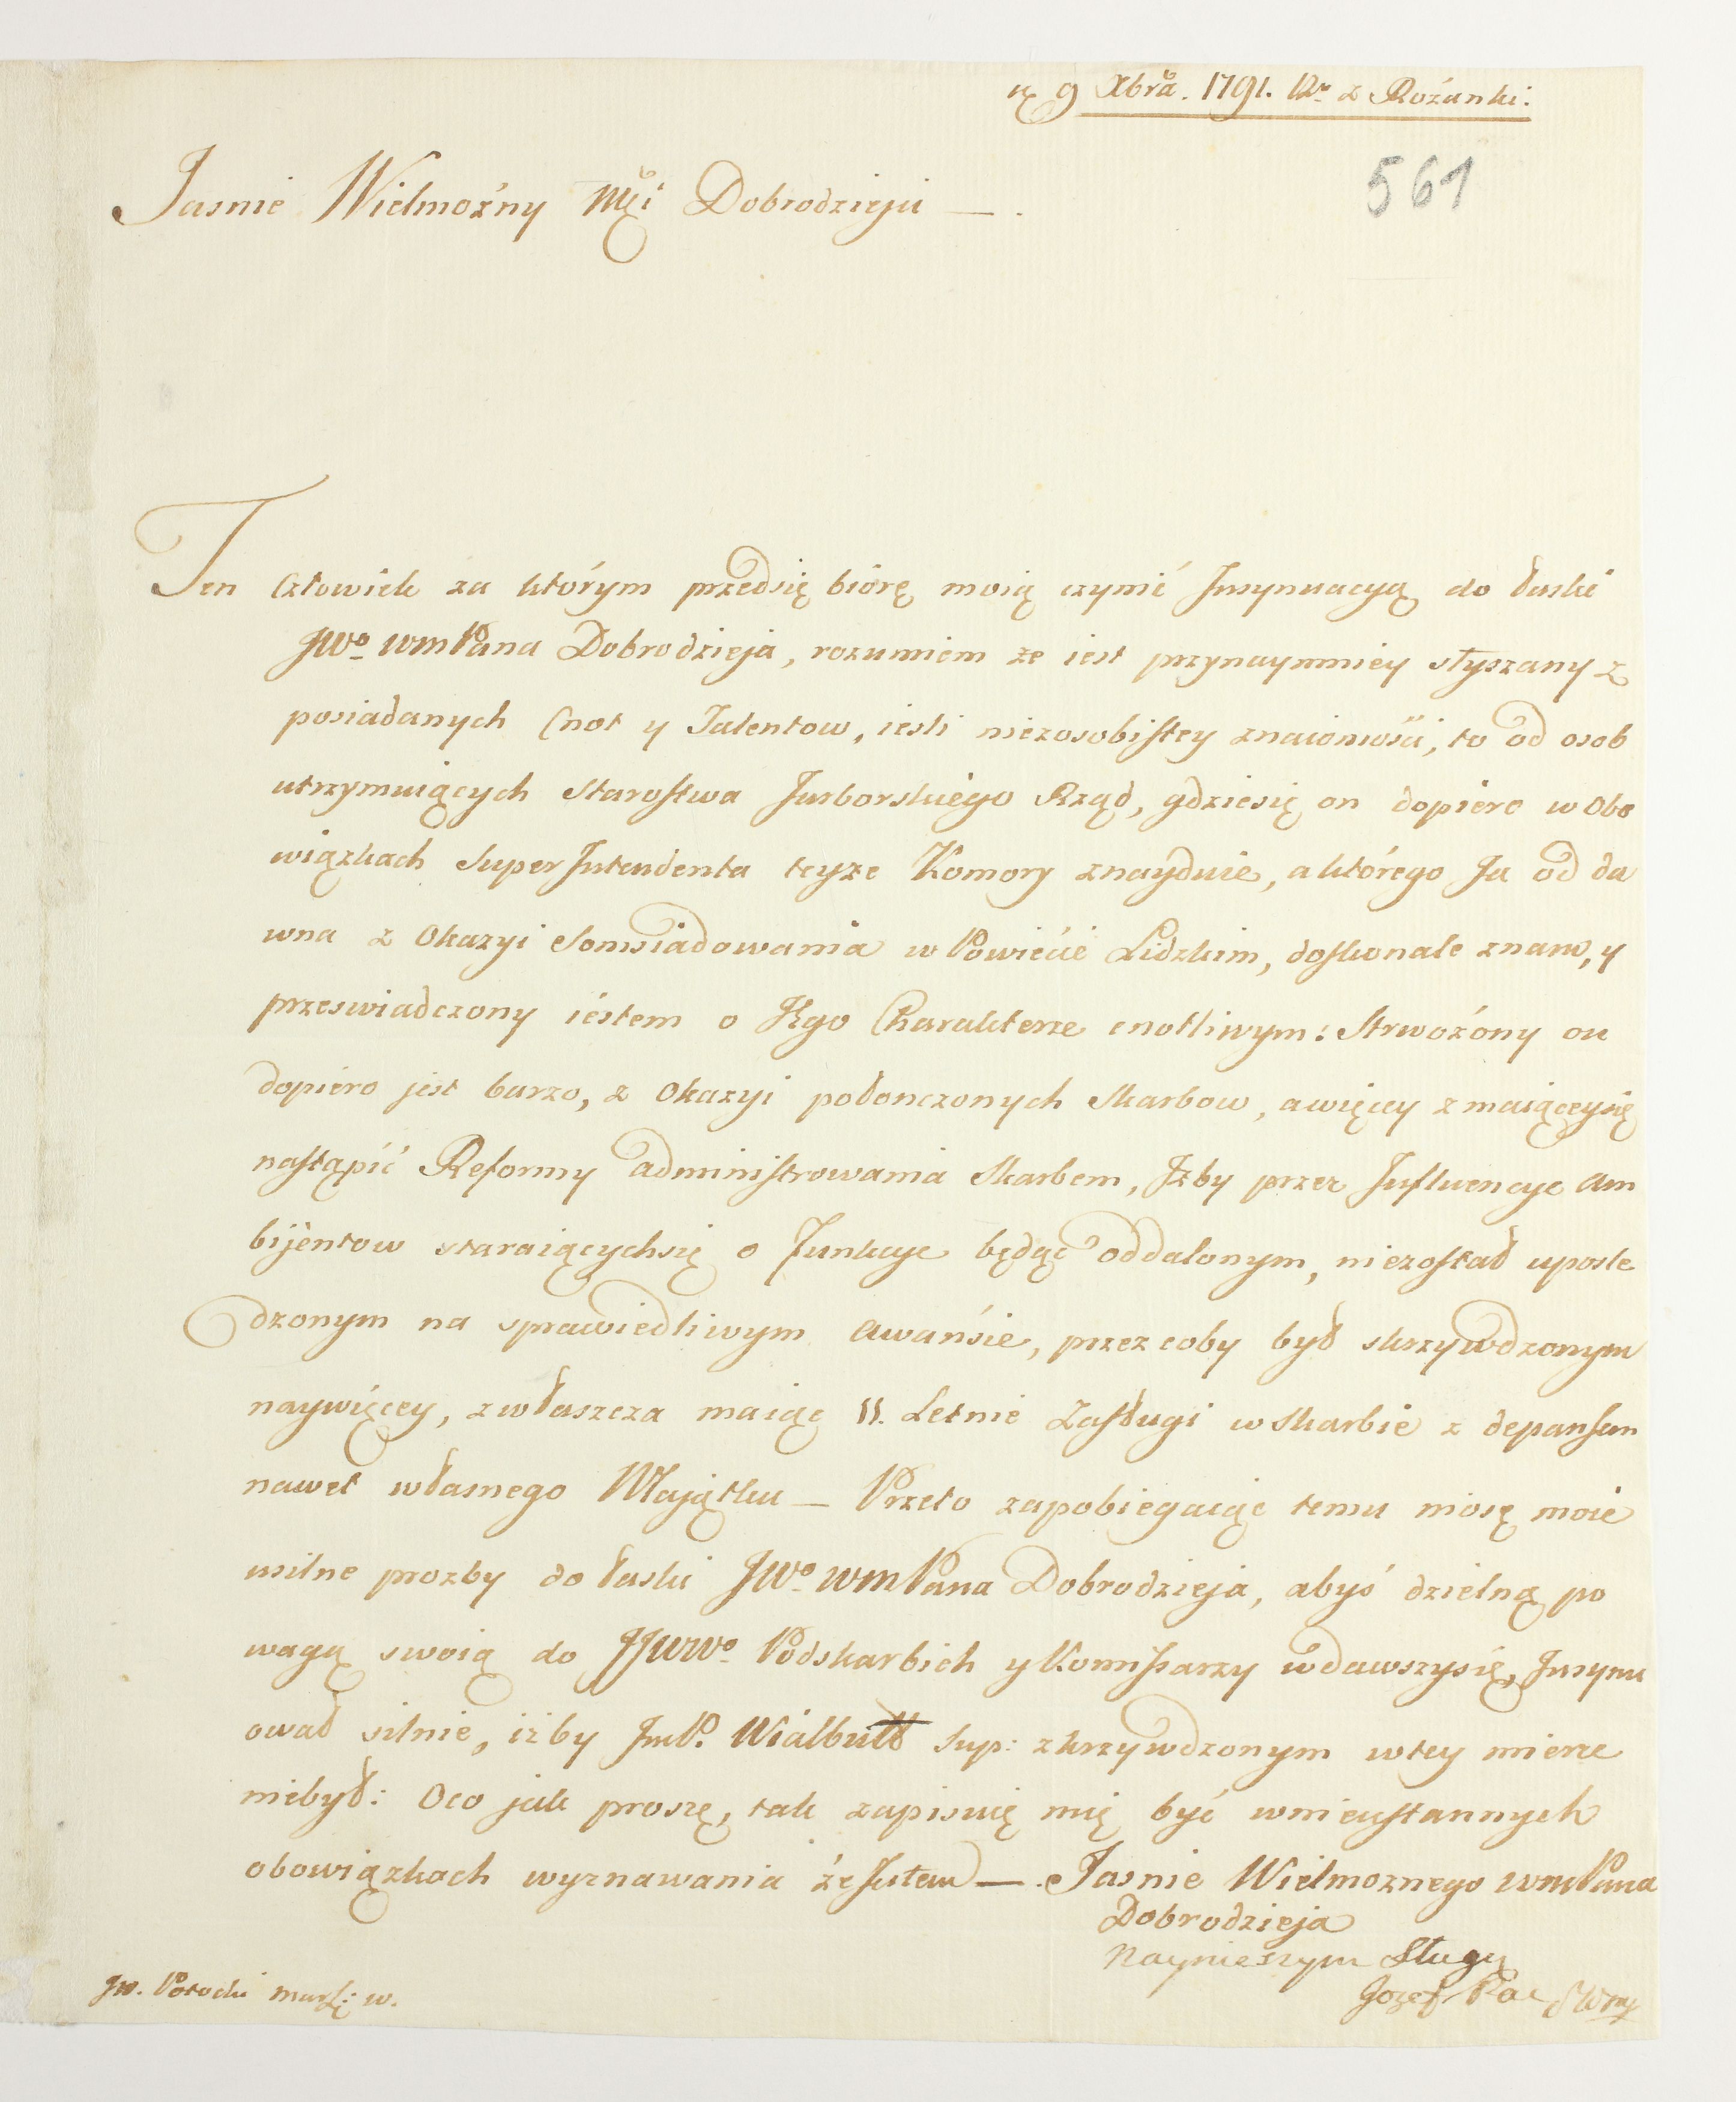 9 Xbra. 1791. Ro z Rożanki:
561
Jasnie Wielmożny Mći Dobrodzieju —.
Ten Człowiek za którym przedsię biorę moią czynić Insynuacyą do łaski
JWo WmPana Dobrodzieja, rozumiem że iest przynaymniey słyszany z
posiadanych Cnot y Talentow, iesli niezosobistey znaiomości, to od osob
utrzymuiących Starostwa Jurborskiego Rząd, gdziesię on dopiero w Obo
wiązkach SuperIntendenta teyże Komory znayduie, a którego Ja od da
wna z Okazyi Somsiadowania w Powiecie Lidzkim, doskonale znam, y
przeswiadczony iestem o Jego Charakterze cnotliwym: Strwożony on
dopiero jest barzo, z Okazyi połonczonych Skarbow, awięcey z maiąceysię
nastąpić Reformy administrowania Skarbem, Iżby przez Influencye Am
bijentow staraiącychsię o Funkcye będąc oddalonym, niezostał uposle
dzonym na sprawiedliwym Awansie, przez coby był skrzywdzonym
naywięcey, zwłaszcza maiąc 11. Letnie Zasługi w Skarbie z depansem
nawet własnego Maiątku — Przeto zapobiegaiąc temu niosę moie
usilne prozby do łaski JWo WmPana Dobrodzieja, abyś dzielną po
wagą swoią do JJWWo Podskarbich y Komissarzy wdawszysię, Insynu
ował silnie, iżby ImP. Wialbutt Sup: zkrzywdzonym wtey mierze
niebył: Oco jak proszę, tak zapisuię mię być wnieustannych
obowiązkach wyznawania że Jestem —. Jasnie Wielmoznego WmPana
Dobrodzieja
Naynieszym Sługą
Jozef Pac
JW. Potocki Mars: W.